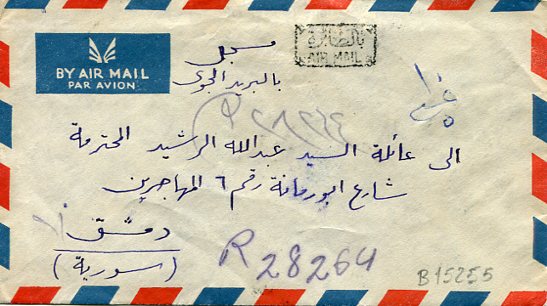 BY AIR MAIL
PAR AVION
مسجل
بالبريد الجوي
بالطائرة
AIR MAIL
الى عائلة السيد عبدالله الرشيد المحترمة
شارع ابورمانة رقم ٦ المهاجرين
دمشق
(سورية)
R 28264
B15255